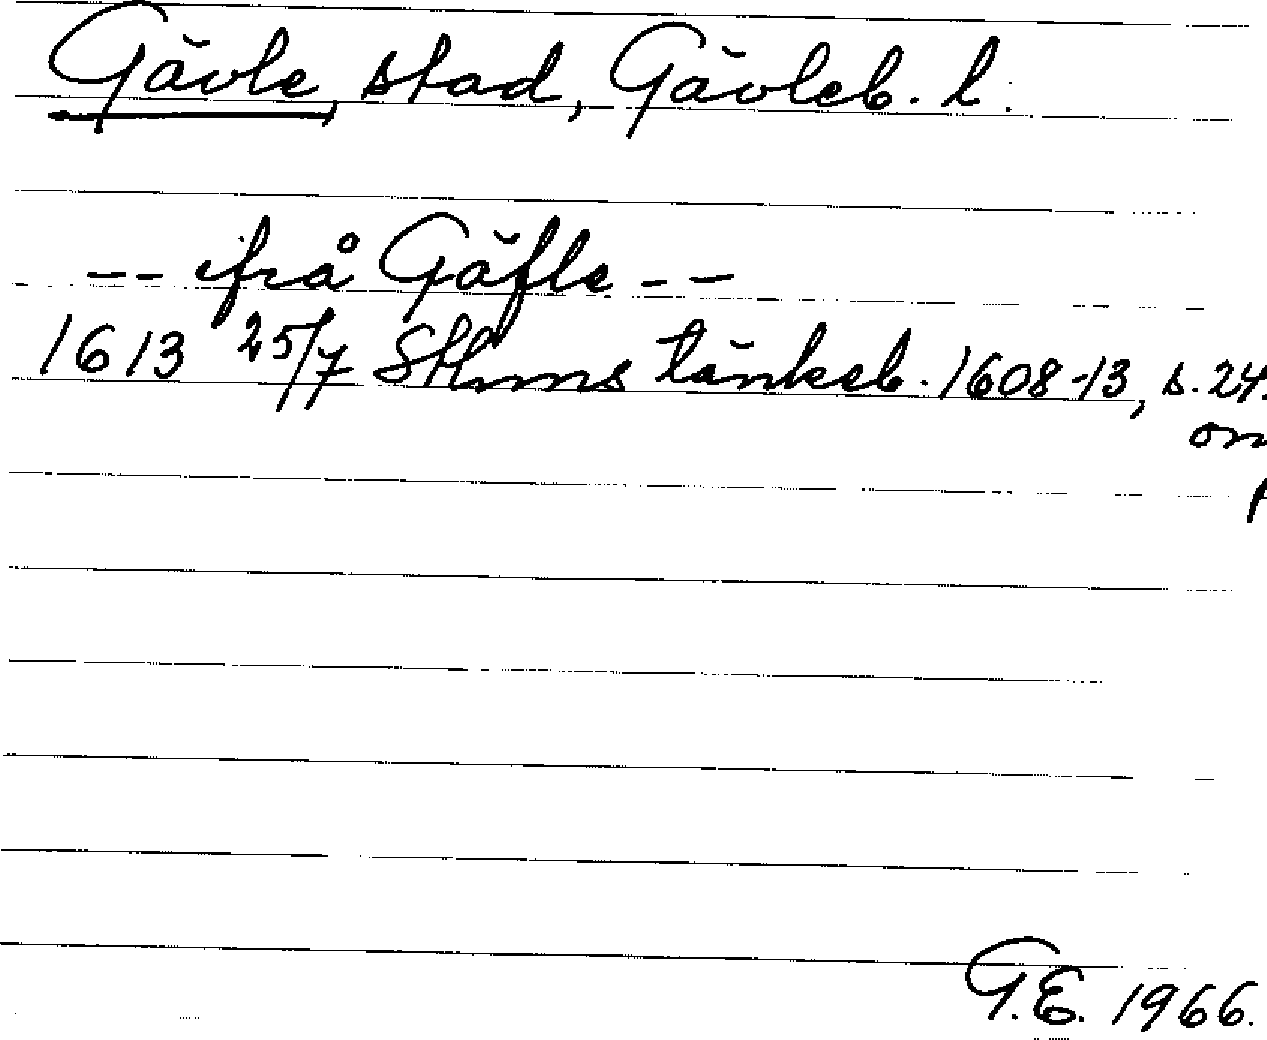 Gävle, stad, Gävleb. l.
-- ifrå Gäfle --
1613 25/7 Sthms tänkeb. 1608-13, s. 24.
G.E. 1966.